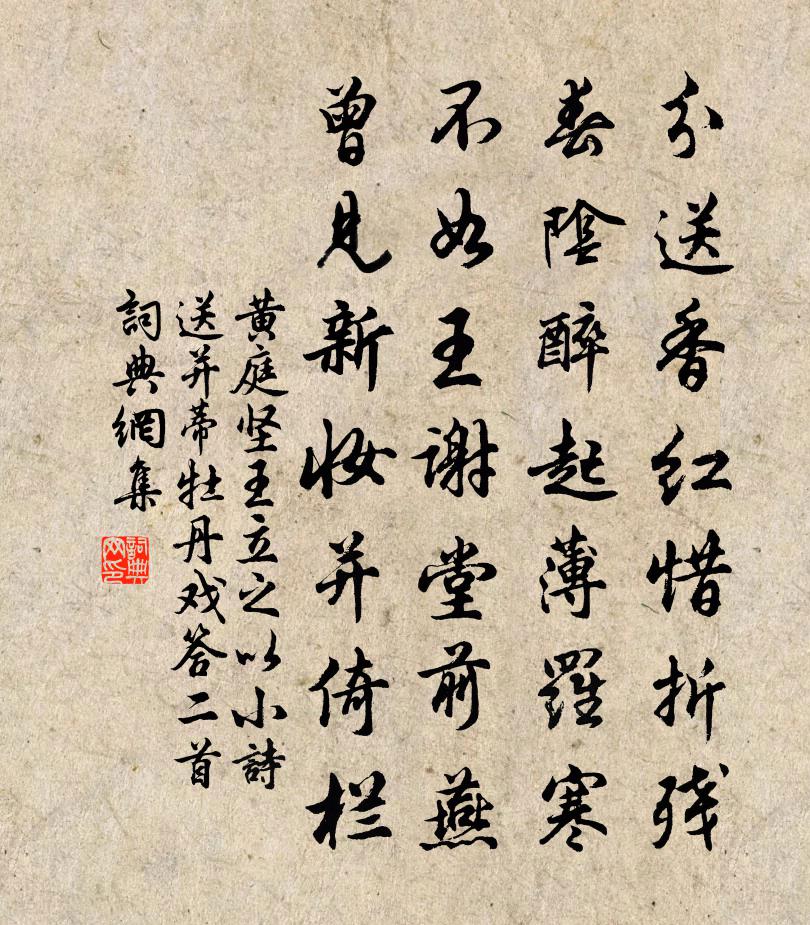 分送香红惜折残
春陰醉起薄羅寒
不如王谢堂前燕
曾見新妆并倚栏
黄庭坚王立之以小詩
送并蒂牡丹戏答二首
詞典網集
詞典網印